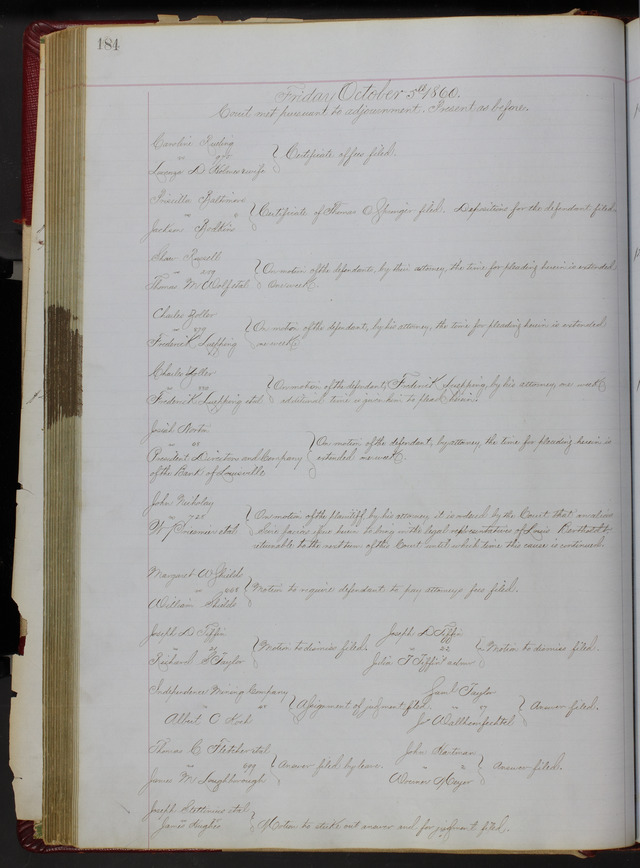 184
Friday October 5th 1860.
Court met pursuant to adjournment. Present as before.
Caroline
Lorenzo D Holmes & wife
Certificate of fees filed.
Priscilla Baltimore
Jackson
Certificate of Thomas O filed. Depositions for the defendant filed.
Shaw Russell
Thomas M Wolf et al
On motion of the defendants, by their attorney, the time for pleading herein is extended
one week.
Charles Zoller
Frederick Luepping
On motion of the defendant, by his attorney, the time for pleading herein is extended
one week.
Charles Zoller
Frederick Luepping et al
On motion of the defendant, Frederick Luepping, by his attorney, one week
additional time is given him to plead herein.
Josiah North
President Directors and Company
of the Bank of Louisville
On motion of the defendant, by attorney, the time for pleading herein is
extended one week.
John Nicholay
et al
On motion of the plaintiff, by his attorney it is ordered by the Court that an alias
Scire facias issue herein to bring in the legal representatives of Louis
returnable to the next term of this Court until which time this cause is continued.
Margaret W Shields
William Shields
Motion to require defendant to pay attorneys fees filed.
Joseph D Tiffin
Richard Taylor
Motion to dismiss filed.
Joseph D Tiffin
Julia T Tiffin admr
22
Motion to dismiss filed.
Independence Mining Company
Albert C Koch
Assignment of judgment filed.
Saml Taylor
Answer filed.
Thomas C Fletcher et al
James M Loughborough
Answer filed by leave.
John Hartman
Werner Meyer
Answer filed.
Joseph Stettinius et al
James Hughes
Motion to strike out answer and for judgment filed.